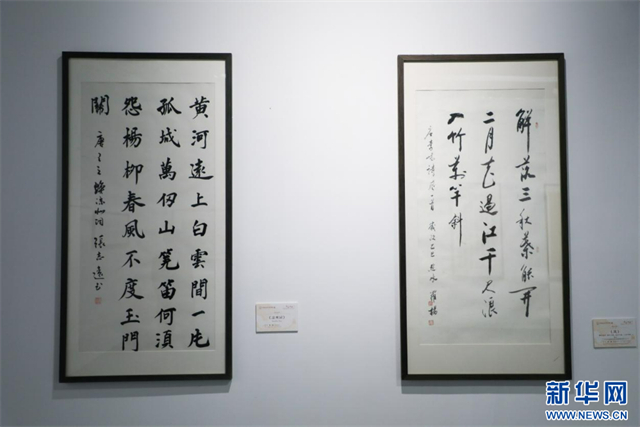 黄河遠上白雲間一片
孤城萬仞山羌笛何須
怨楊柳春風不度玉門
關
唐王之渙涼州詞 張志遠书
解落三秋葉能開
二月花過江千尺浪
入竹萬竿斜
唐李嶠詩風一首
新华网
WWW.NEWS.CN